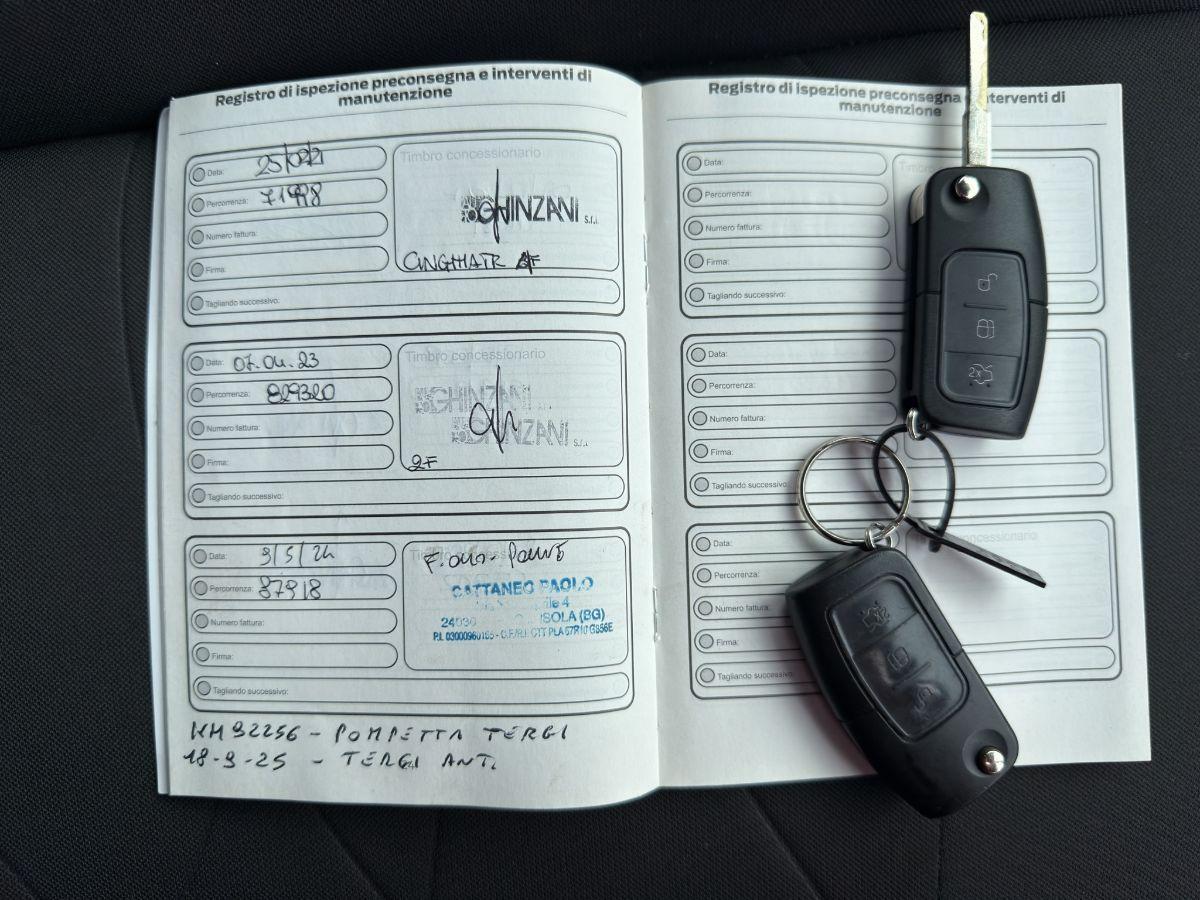 Registro di ispezione preconsegna e interventi di
manutenzione
Data: 25/02/21
Percorrenza: 71998
Numero fattura:
Firma:
Tagliando successivo:
Timbro concessionario
GHINZANI S.r.l.
Data: 07.04.23
Percorrenza:
Numero fattura:
Firma:
Tagliando successivo:
Timbro concessionario
GHINZANI
GHINZANI S.r.l.
2F
Data: 9/5/24
Percorrenza: 87918
Numero fattura:
Firma:
Tagliando successivo:
CATTANEO PAOLO
ile 4
24030 ISOLA (BG)
KM 92256 - POMPETTA TERGI
18-9-25 - TERGI ANT.
Registro di ispezione preconsegna e interventi di
manutenzione
Data:
Percorrenza:
Numero fattura:
Firma:
Tagliando successivo:
Data:
Percorrenza:
Numero fattura:
Firma:
Tagliando successivo:
Data:
Percorrenza:
Numero fattura:
Firma:
Tagliando successivo:
concessionario
2x